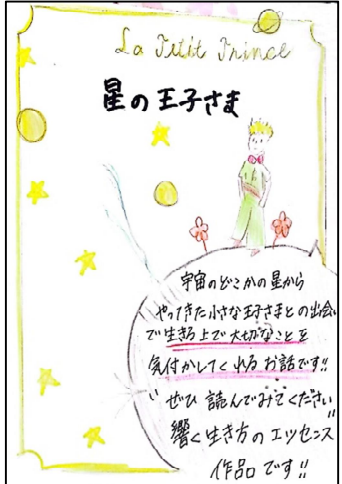 La Petit Prince
星の王子さま
宇宙のどこかの星から
やってきた小さな王子さまとの出会い
で生きる上で大切なことを
気付かしてくれるお話です!!
ぜひ読んでみてください
響く生き方のエッセンス
作品です!!